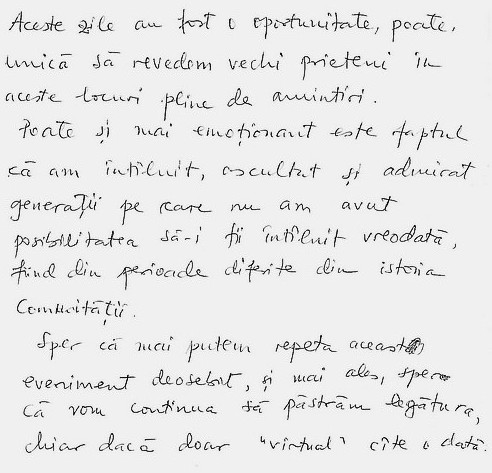 Aceste zile au fost o oportunitate, poate,
unică să revedem vechi prieteni in
aceste locuri pline de amintiri.
Poate și mai emoționant este faptul
că am intîlnit, ascultat și admirat
generații pe care nu am avut
posibilitatea să-i fi intîlnit vreodată,
fiind din perioade diferite din istoria
Comunității.
Sper că mai putem repeta aceast
eveniment deosebit, și mai ales, sper
că vom continua să păstrăm legătura,
chiar dacă doar "virtual" cîte o dată.